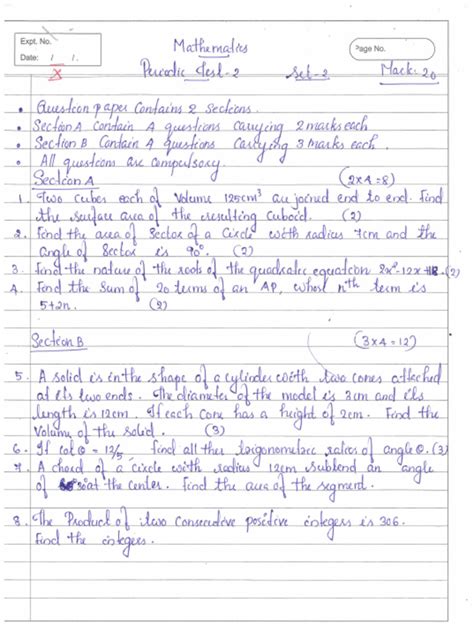 Expt. No.
Date: / / .
X
Mathematics
Page No.
Periodic Test-2 Set-2 Mark: 20
• Question paper Contains 2 Sections.
• Section A Contain 4 questions Carrying 2 marks each
• Section B Contain 4 questions Carrying 3 Marks each.
• All questions are Compulsory.
Section A (2x4=8)
1. Two cubes each of Volume 125cm³ are joined end to end. Find
the surface area of the resulting cuboid. (2)
2. Find the area of Sector of a Circle with radius 7cm and the
angle of Sector is 90°. (2)
3. Find the nature of the roots of the quadratic equation 2x²-12x+18. (2)
4. Find the Sum of 20 terms of an AP, whose nth term is
5+2n. (2)
Section B (3x4=12)
5. A solid is in the shape of a cylinder with two cones attached
at its two ends. The diameter of the model is 3cm and its
length is 12cm. If each Cone has a height of 2cm. Find the
Volume of the solid. (3)
6. If cot θ = 12/5, find all the trigonometric ratios of angle θ. (3)
7. A chord of a circle with radius 12cm subtend an angle
of at the center. Find the area of the segment.
8. The Product of two Consecutive positive integers is 306.
Find the integers.